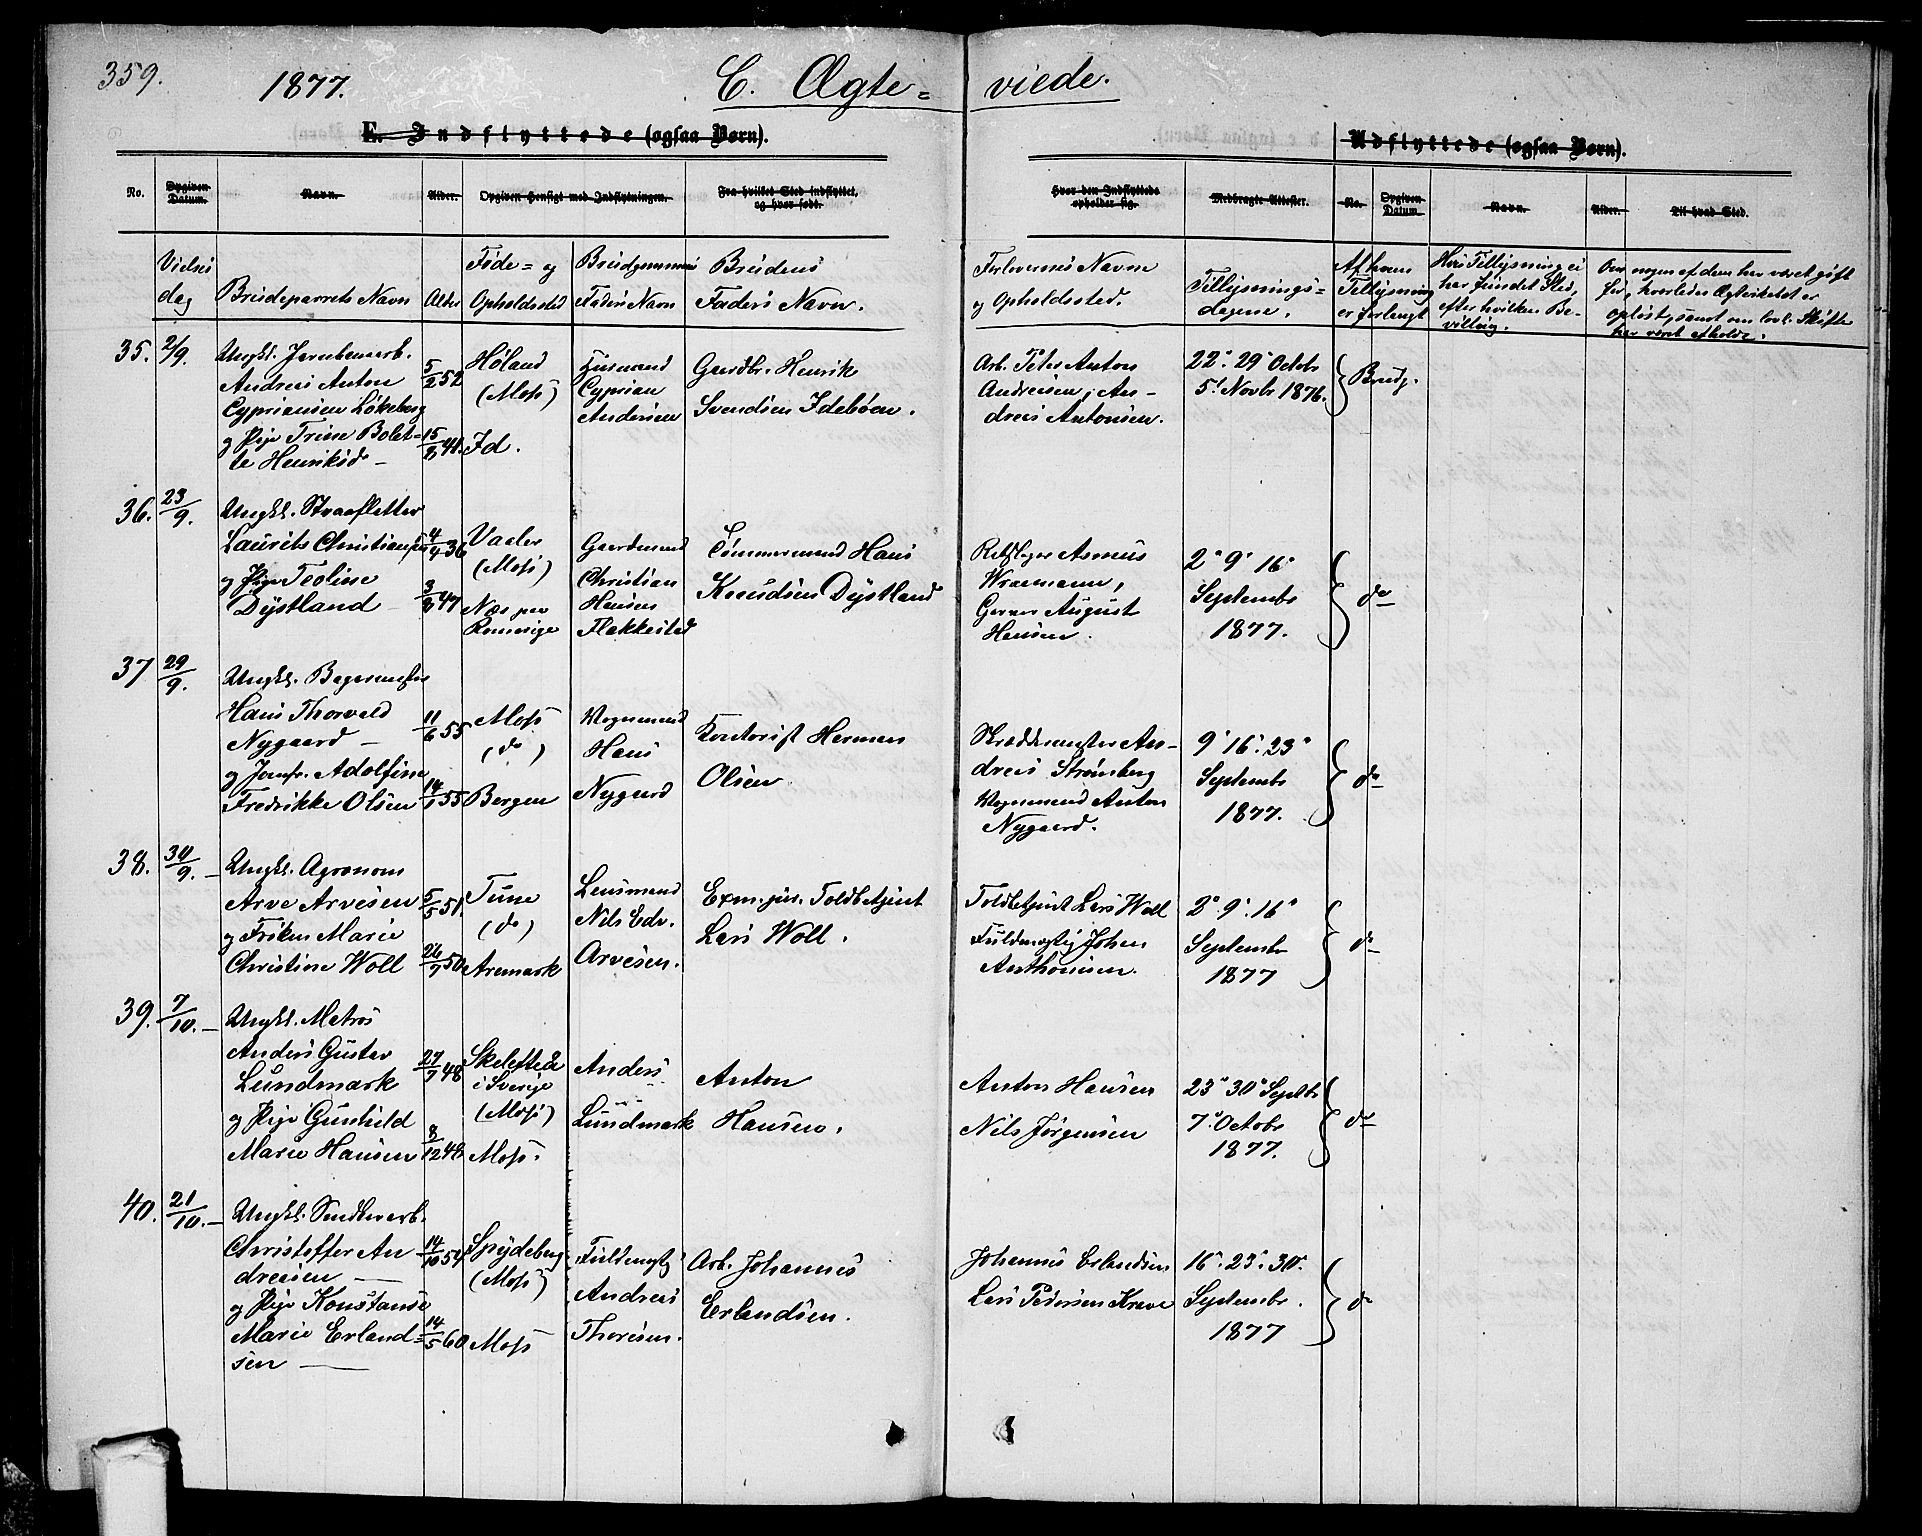 359.
1877.
C. Ægte=
viede.
E. Indflyttede (ogsaa Børn).
Udflyttede (ogsaa Børn).
No.
Opgiven Datum.
Navn.
Alder.
Opgiven Hensigt med Indflytningen.
Fra hvilket Sted indflyttet, og hvor født.
Hvor den Indflyttede opholder sig.
Medbragte Attester.
No.
Opgiven Datum.
Navn.
Alder.
Til hvad Sted.
Vielses
dag
Brudeparrets Navn
Alder
Føde= og
Opholdssted
Brudgommens
Faders Navn
Brudens
Faders Navn.
Forlovernes Navne
og Opholdssted.
Tillysnings=
dagene.
Af hvem
Tillysning
er forlangt
Hvis Tillysning ei
har fundet Sted,
efter hvilken Be-
villing.
Om nogen af dem har været gift
før, hvorledes Ægteskabet er
opløst, samt om lovl. Skifte
har været afholdt.
35. 2/9.
Ungkl. Jernbanearb.
Andreas Anton
Cypriansen Løkeberg
og Pige Trine Bolet-
te Henriksd. –
5/2 52
15/8 41.
Høland
(Moss)
Id.
Husmand
Cyprian
Andersen
Gaardbr. Henrik
Svendsen Idebøen.
Arb. Peter Anton
Andreasen, An-
dreas Antonsen.
22. 29. Octobr
5. Novbr. 1876.
Brudg.
36. 23/9.
Ungkl. Straafletter
Laurits Christiansen
og Pige Teoline
Dystland –
4/4 36
3/8 47
Vaaler
(Moss)
Næs paa
Romerige
Gaardmand
Christian
Hansen
Flakkestad
Tømmermand Hans
Knudsen Dystland
Rebslager Asmus
Wraamann,
Garver August
Hansen.
2. 9. 16.
Septembr
1877.
do
37 29/9.
Ungkl. Bagermester
Hans Thorvald
Nygaard –
og Jomfr. Adolfine
Fredrikke Olsen
11/6 55
14/1 55
Moss
(do)
Bergen
Vognmand
Hans
Nygaard
Kontorist Herman
Olsen
Skræddermester An-
dreas Strømberg
Vognmand Anton
Nygaard.
9. 16. 23.
Septembr
1877.
do
38. 30/9. –
Ungkl. Agronom
Arve Arvesen
og Frøken Marie
Christine Woll
5/5 51.
26/7 50
Tune
(do)
Aremark
Lensmand
Nils Edv.
Arvesen.
Exm. jur. Toldbetjent
Lars Woll.
Toldbetjent Lars Woll
Fuldmægtig Johan
Anthonisen.
2. 9. 16.
Septembr
1877
do
39. 7/10. –
Ungkl. Matros
Anders Gustav
Lundmark
og Pige Gunhild
Marie Hansen
27/7 48
8/12 48
Skelefteå
i Sverige
(Moss)
Moss.
Anders
Lundmark
Anton
Hansen.
Anton Hansen
Nils Jørgensen
23. 30. Septbr
7. Octobr
1877.
do
40. 21/10. –
Christoffer An
dreasen –
og Pige Konstanse
Marie Erland=
sen –
14/10 54
14/5 60
Spydeberg
(Moss)
Moss
Fuldmægtig
Andreas
Thoresen.
Arb. Johannes
Erlandsen.
Johannes Erlandsen
Lars Pedersen Krave
16. 23. 30.
Septembr.
1877
do